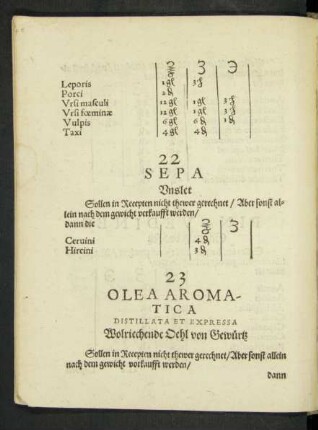 Leporis 1gl 3₰
Porci 2₰
Vrsi masculi 12gl 1gl 3₰
Vrsi fœminæ 12gl 1gl 3₰
Vulpis 6gl 6₰ 1₰
Taxi 4gl 4₰
22
SEPA
Vnslet
Sollen in Recepten nicht thewer gerechnet / Aber sonst al-
lein nach dem gewicht verkaufft werden/
dann die
Ceruini 4₰
Hircini 3₰
23
OLEA AROMA-
TICA
DISTILLATA ET EXPRESSA
Wolriechende Oehl von Gewürtz
Sollen in Recepten nicht thewer gerechnet/Aber sonst allein
nach dem gewicht vorkaufft werden/
dann